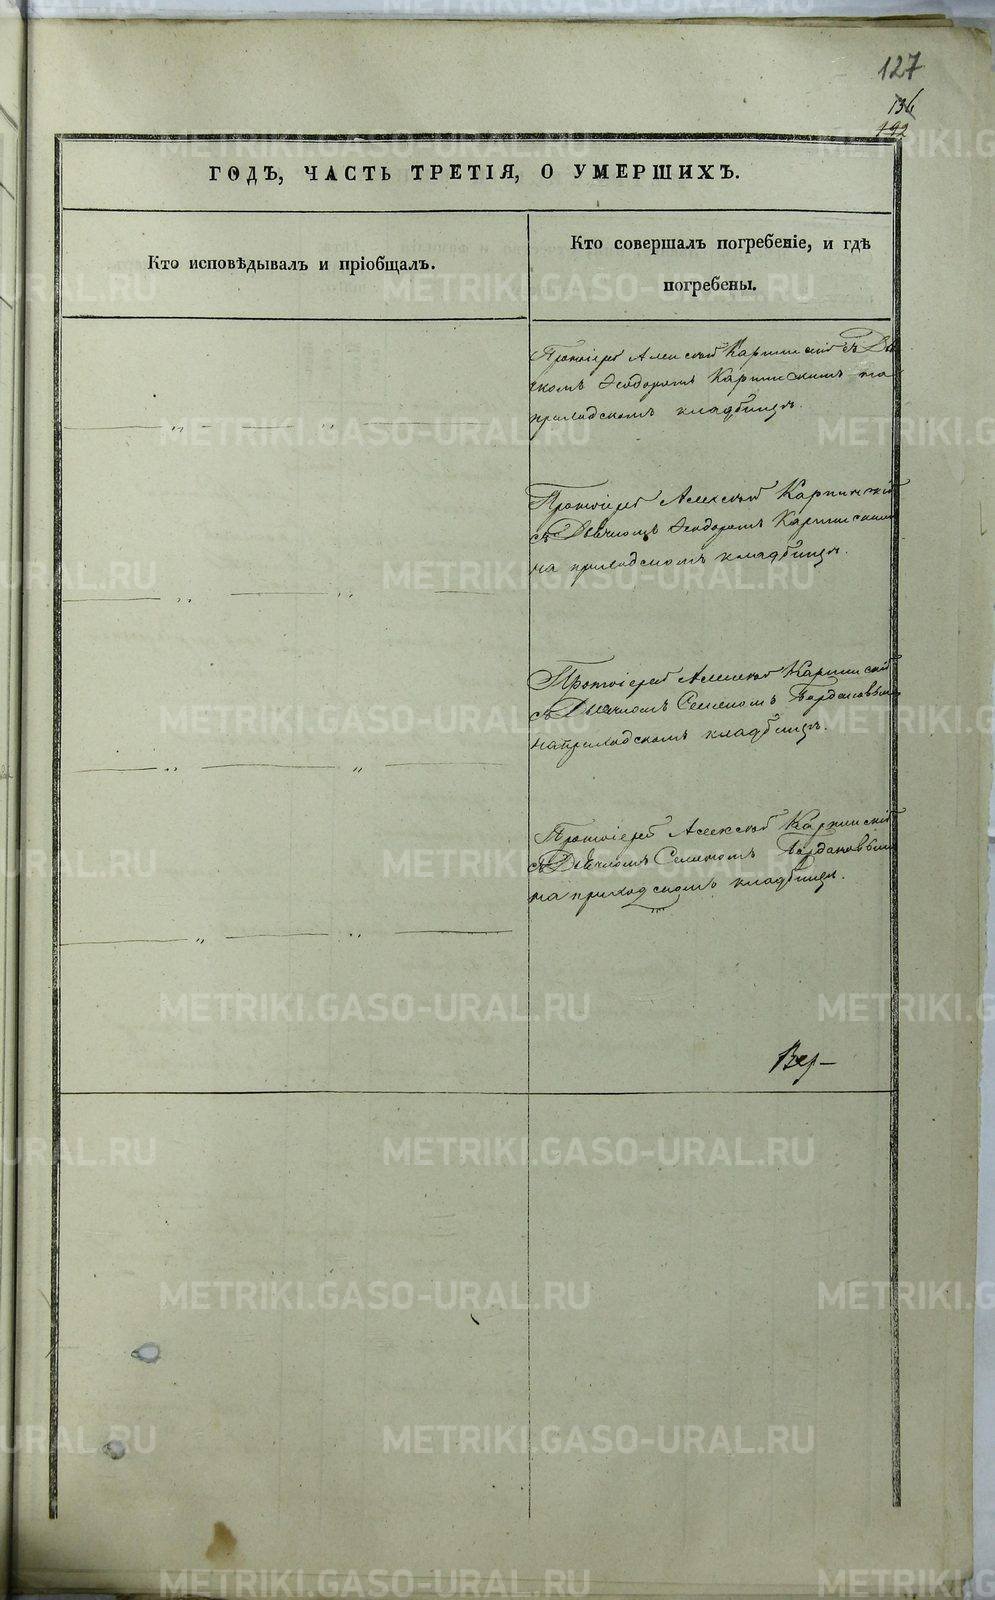 127
136
192
ГОДЪ, ЧАСТЬ ТРЕТІЯ, О УМЕРШИХЪ.
Кто исповѣдывалъ и пріобщалъ.
Кто совершалъ погребеніе, и гдѣ
погребены.
Протоіерей Алексѣй Карпинскій съ Дья
чкомъ Ѳеодоромъ Карпинскимъ на
приходскомъ кладбищѣ.
Протоіерей Алексѣй Карпинскій
съ Дьячкомъ Ѳеодоромъ Карпинскимъ
на приходскомъ кладбищѣ.
Протоіерей Алексѣй Карпинскій
съ Дьячкомъ Семеномъ
на приходскомъ кладбищѣ.
Протоіерей Алексѣй Карпинскій
съ Дьячкомъ Семеномъ
на приходскомъ кладбищѣ.
METRIKI.GASO-URAL.RU